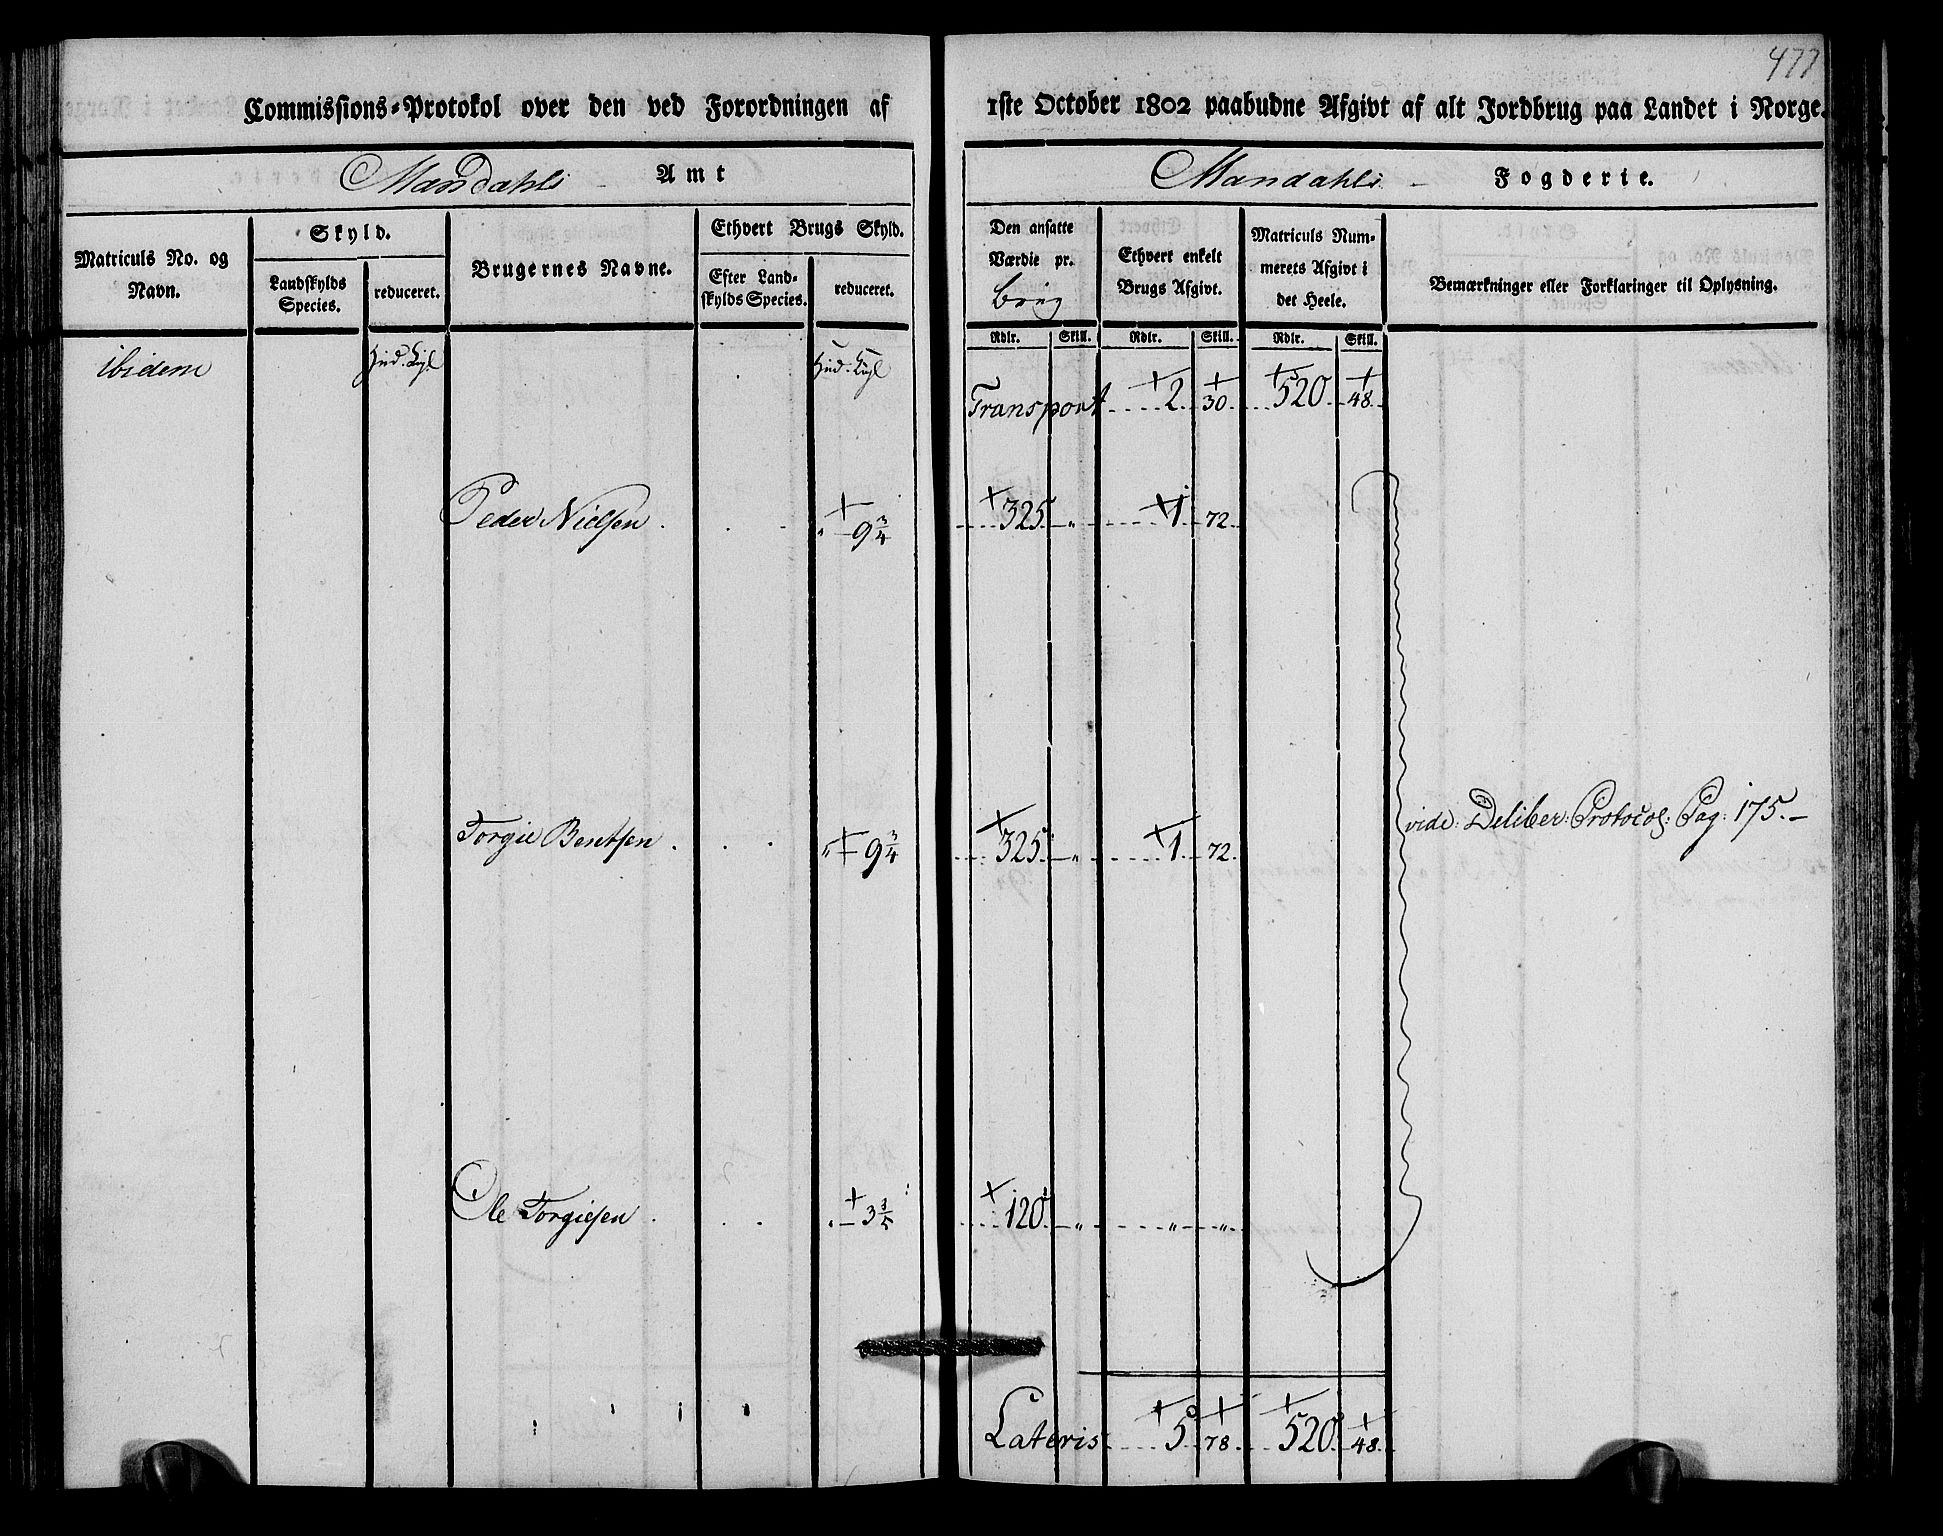 477
Commissions-Protokol over den ved Forordningen af 1ste October 1802 paabudne Afgivt af alt Jordbrug paa Landet i Norge.
Mandahls Amt
Mandahls Fogderie.
Matriculs No. og Navn.
Skyld.
Landskylds Species.
reduceret.
Brugernes Navne.
Ethvert Brugs Skyld.
Efter Landskylds Species.
reduceret.
Den ansatte Værdie pr. brug
Ethvert enkelt Brugs Afgivt.
Matriculs Nummerets Afgivt i det Heele.
Bemærkninger eller Forklaringer til Oplysning.
Rdlr. Skill. Rdlr. Skill. Rdlr. Skill.
ibidem Hud. Hud.
Transport 2 30 520 48
Peder Nielsen 9 3/4 325 " 1 72
Torgie Bentsen " 9 3/4 325 " 1 72
vide: Deliber: Protocol: Pag: 175.
Ole Torgiesen " 3 3/5 120 " " "
Lateris 5 78 520 48